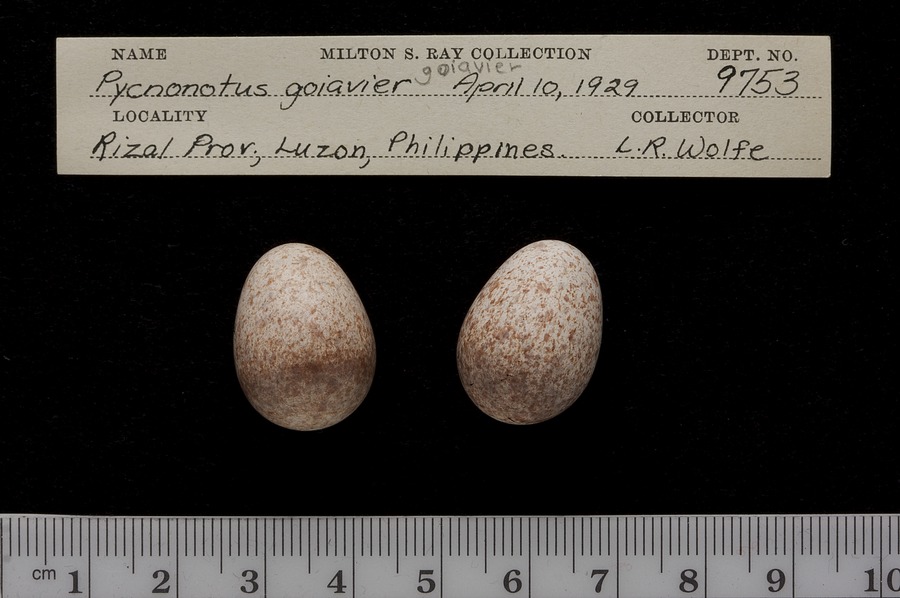 NAME MILTON S. RAY COLLECTION DEPT. NO.
goiavier
Pycnonotus goiavier April 10, 1929 9753
LOCALITY COLLECTOR
Rizal Prov., Luzon, Philippines. L.R. Wolfe
cm 1 2 3 4 5 6 7 8 9 10